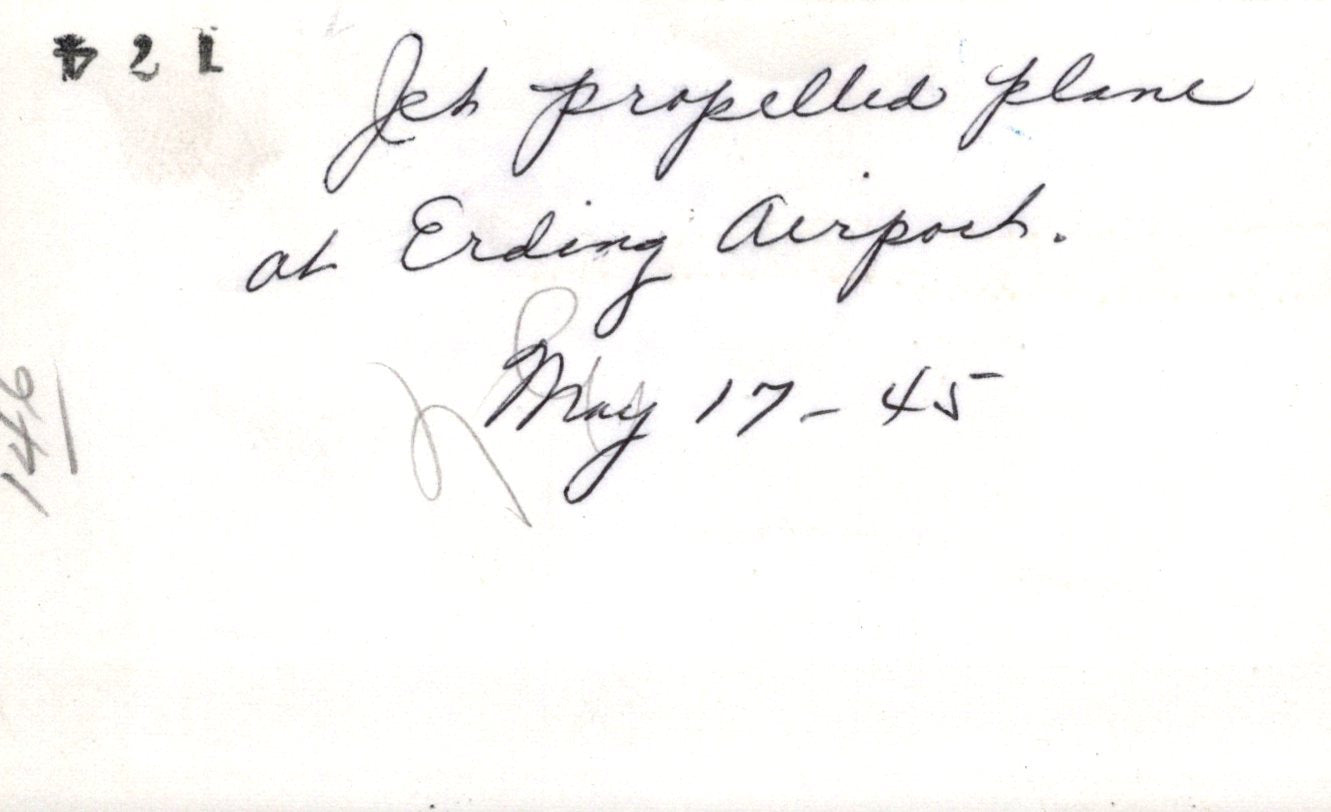 Jet propelled plane
at Erding Airport.
May 17-45
146